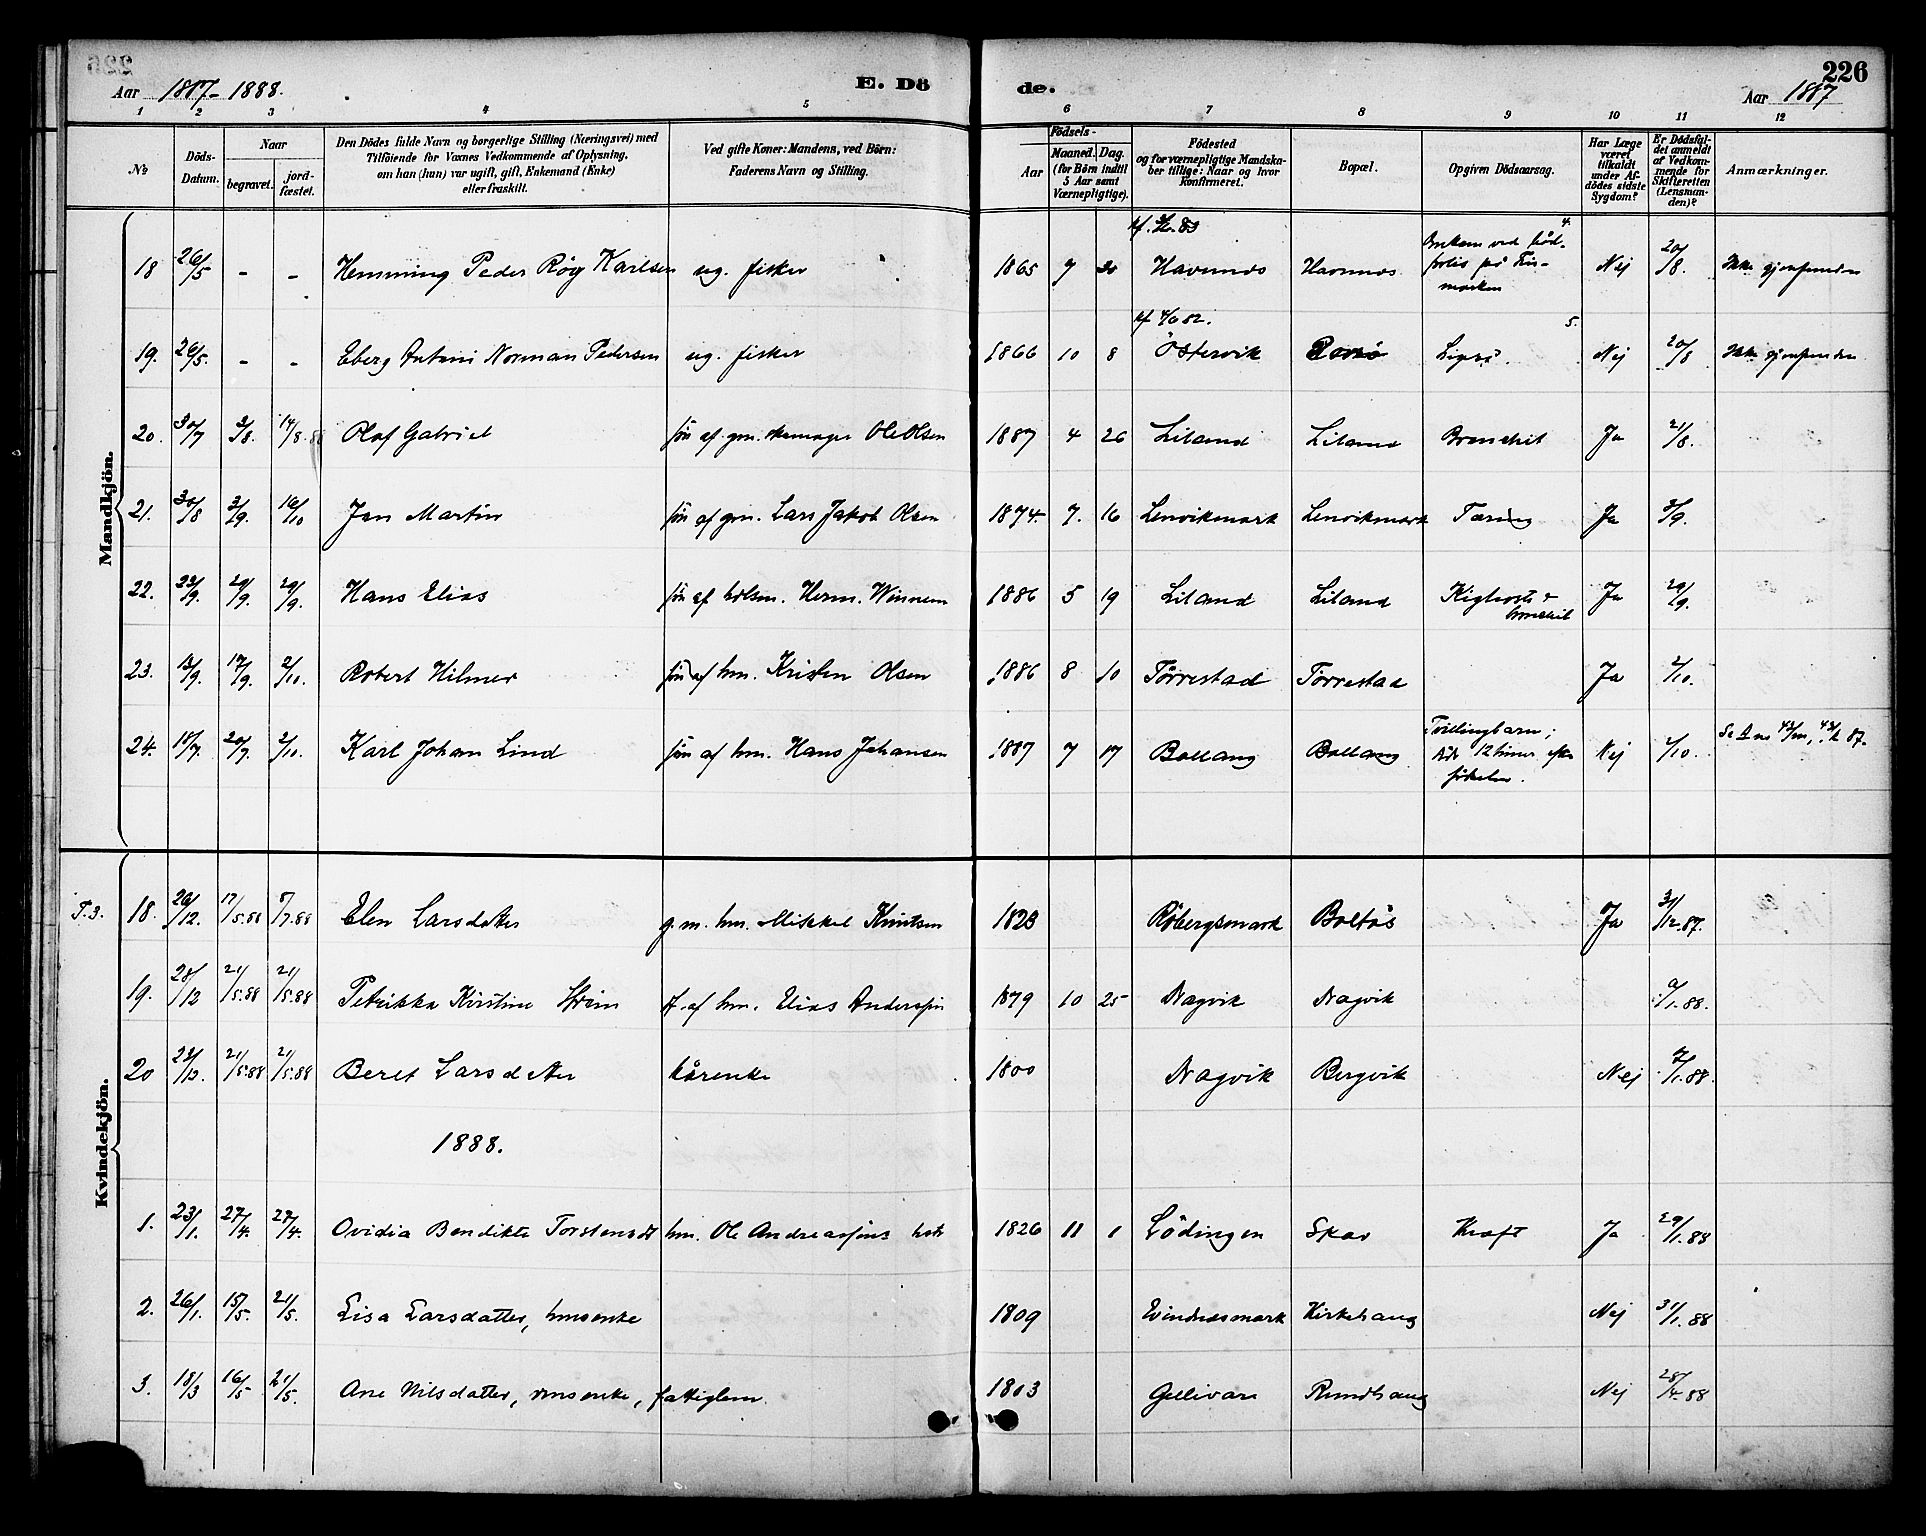 Aar 1887-1888.
E. Dö
de.
226
Aar 1887
1 2 3 4 5 6 7 8 9 10 11 12
No
Döds-Datum.
Naar
begravet.
jordfæstet.
Den Dödes fulde Navn og borgerlige Stilling (Næringsvei) med
Tilföiende for Voxnes Vedkommende af Oplysning,
om han (hun) var ugift, gift, Enkemand (Enke)
eller fraskilt.
Ved gifte Koner: Mandens, ved Börn:
Faderens Navn og Stilling.
Födsels-
Aar
Maaned. Dag.
(for Börn indtil
5 Aar samt
Værnepligtige).
Födested
og for værnepligtige Mandskaber tillige: Naar og hvor
konfirmeret.
Bopæl.
Opgiven Dödsaarsag.
Har Læge
været
tilkaldt
under Afdödes sidste
Sygdom?
Er Dödsfaldet anmeldt
af Vedkommende for
Skifteretten
(Lensmanden)?
Anmærkninger.
Mandkjön.
18 26/5 - - Hemming Peder Röy Karlsen ug. fisker 1865 7 20 Havnnes Havnnes Omkom ved båd- 4. Nej 20/8. Ikke gjenfunden
19. 26/5. - - Eberg Antoni Norman Pedersen ug. fisker 1866 10 8 kf 82. Östervik 5. Nej 20/8 Ikke gjenfunden
20. 30/7 3/8. 14/8.88 Olaf Gabriel sön af gm. skomager Ole Olsen 1887 4 26 Liland Liland Bronchit Ja 21/8.
21. 30/8 3/9. 16/10 Jan Martin sön af gm. Lars Jakob Olsen 1874. 7. 16 Lenvikmark Lenvikmark Tæring Ja 3/9.
22. 22/9. 29/9. 29/9. Hans Elias sön af Herm. Winnem 1886 5 19 Liland Liland Kighoste & bronchit Ja 29/9.
23. 13/9. 17/9. 2/10. Robert Hilmer sön af hm. Kristen Olsen 1886 8 10 Törrestad Törrestad Ja 2/10.
24. 18/7. 20/7. 2/10. Karl Johan Lind sön af hm. Hans Johansen 1887 7 17 Ballang Ballang Tvillingbarn; död 12 timer efter födselen. Nej 2/10.
Kvindekjön.
T.3. 18. 26/12. 17/5.88 8/7.88 Elen Larsdatter g. m. hm. Mikkel Knutsen 1823 Röbergsmark Boltås Ja 31/12.87.
19. 28/12 21/5.88 21/5.88 Petrikka Kirstine d. af hm. Elias Anderssön 1879 10 25 Nagvik Nagvik 9/1.88.
20 22/12. 21/5.88 21/5.88 Beret Larsdatter kårenke 1800 Nagvik Bergvik Nej 9/1.88.
1888.
1. 23/1. 27/4. 27/4. Ovidia Bendikte Torstensdt hm. Ole Andreassöns 1826 11 1 Lödingen Skar Kræft Ja 29/1.88
2. 26/1. 15/5. 21/5. Lisa Larsdatter, hmsenke 1809 Evindnesmark Kirkehaug Nej 31/1.88
3. 18/3 16/5 21/5. Ane Nilsdatter, enke, fattiglem. 1803 Gellivare Rundhaug Nej 28/4.88